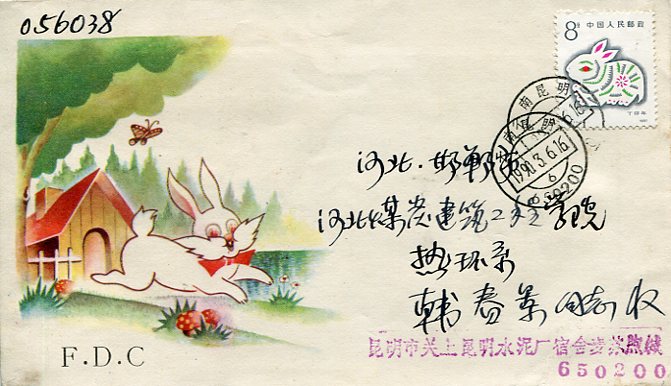 056038
8分 中国人民邮政
河北·邯郸市
河北煤炭建筑工程学院
热环系
韩春景同志收
昆明市关上昆明水泥厂宿舍
650200
1991.3.6.16
650200
F.D.C